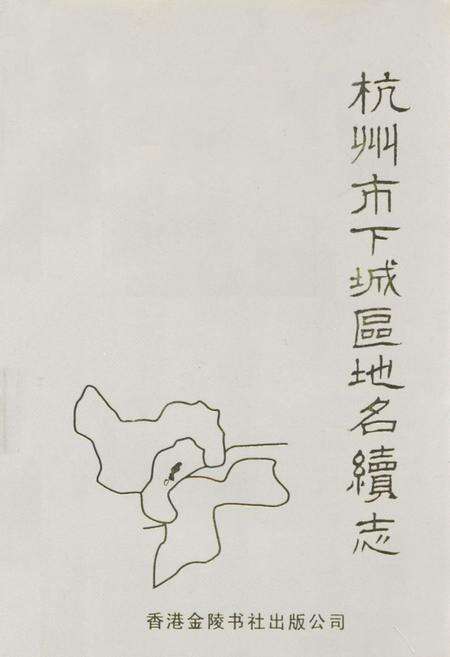 杭州市下城區地名續志
香港金陵书社出版公司